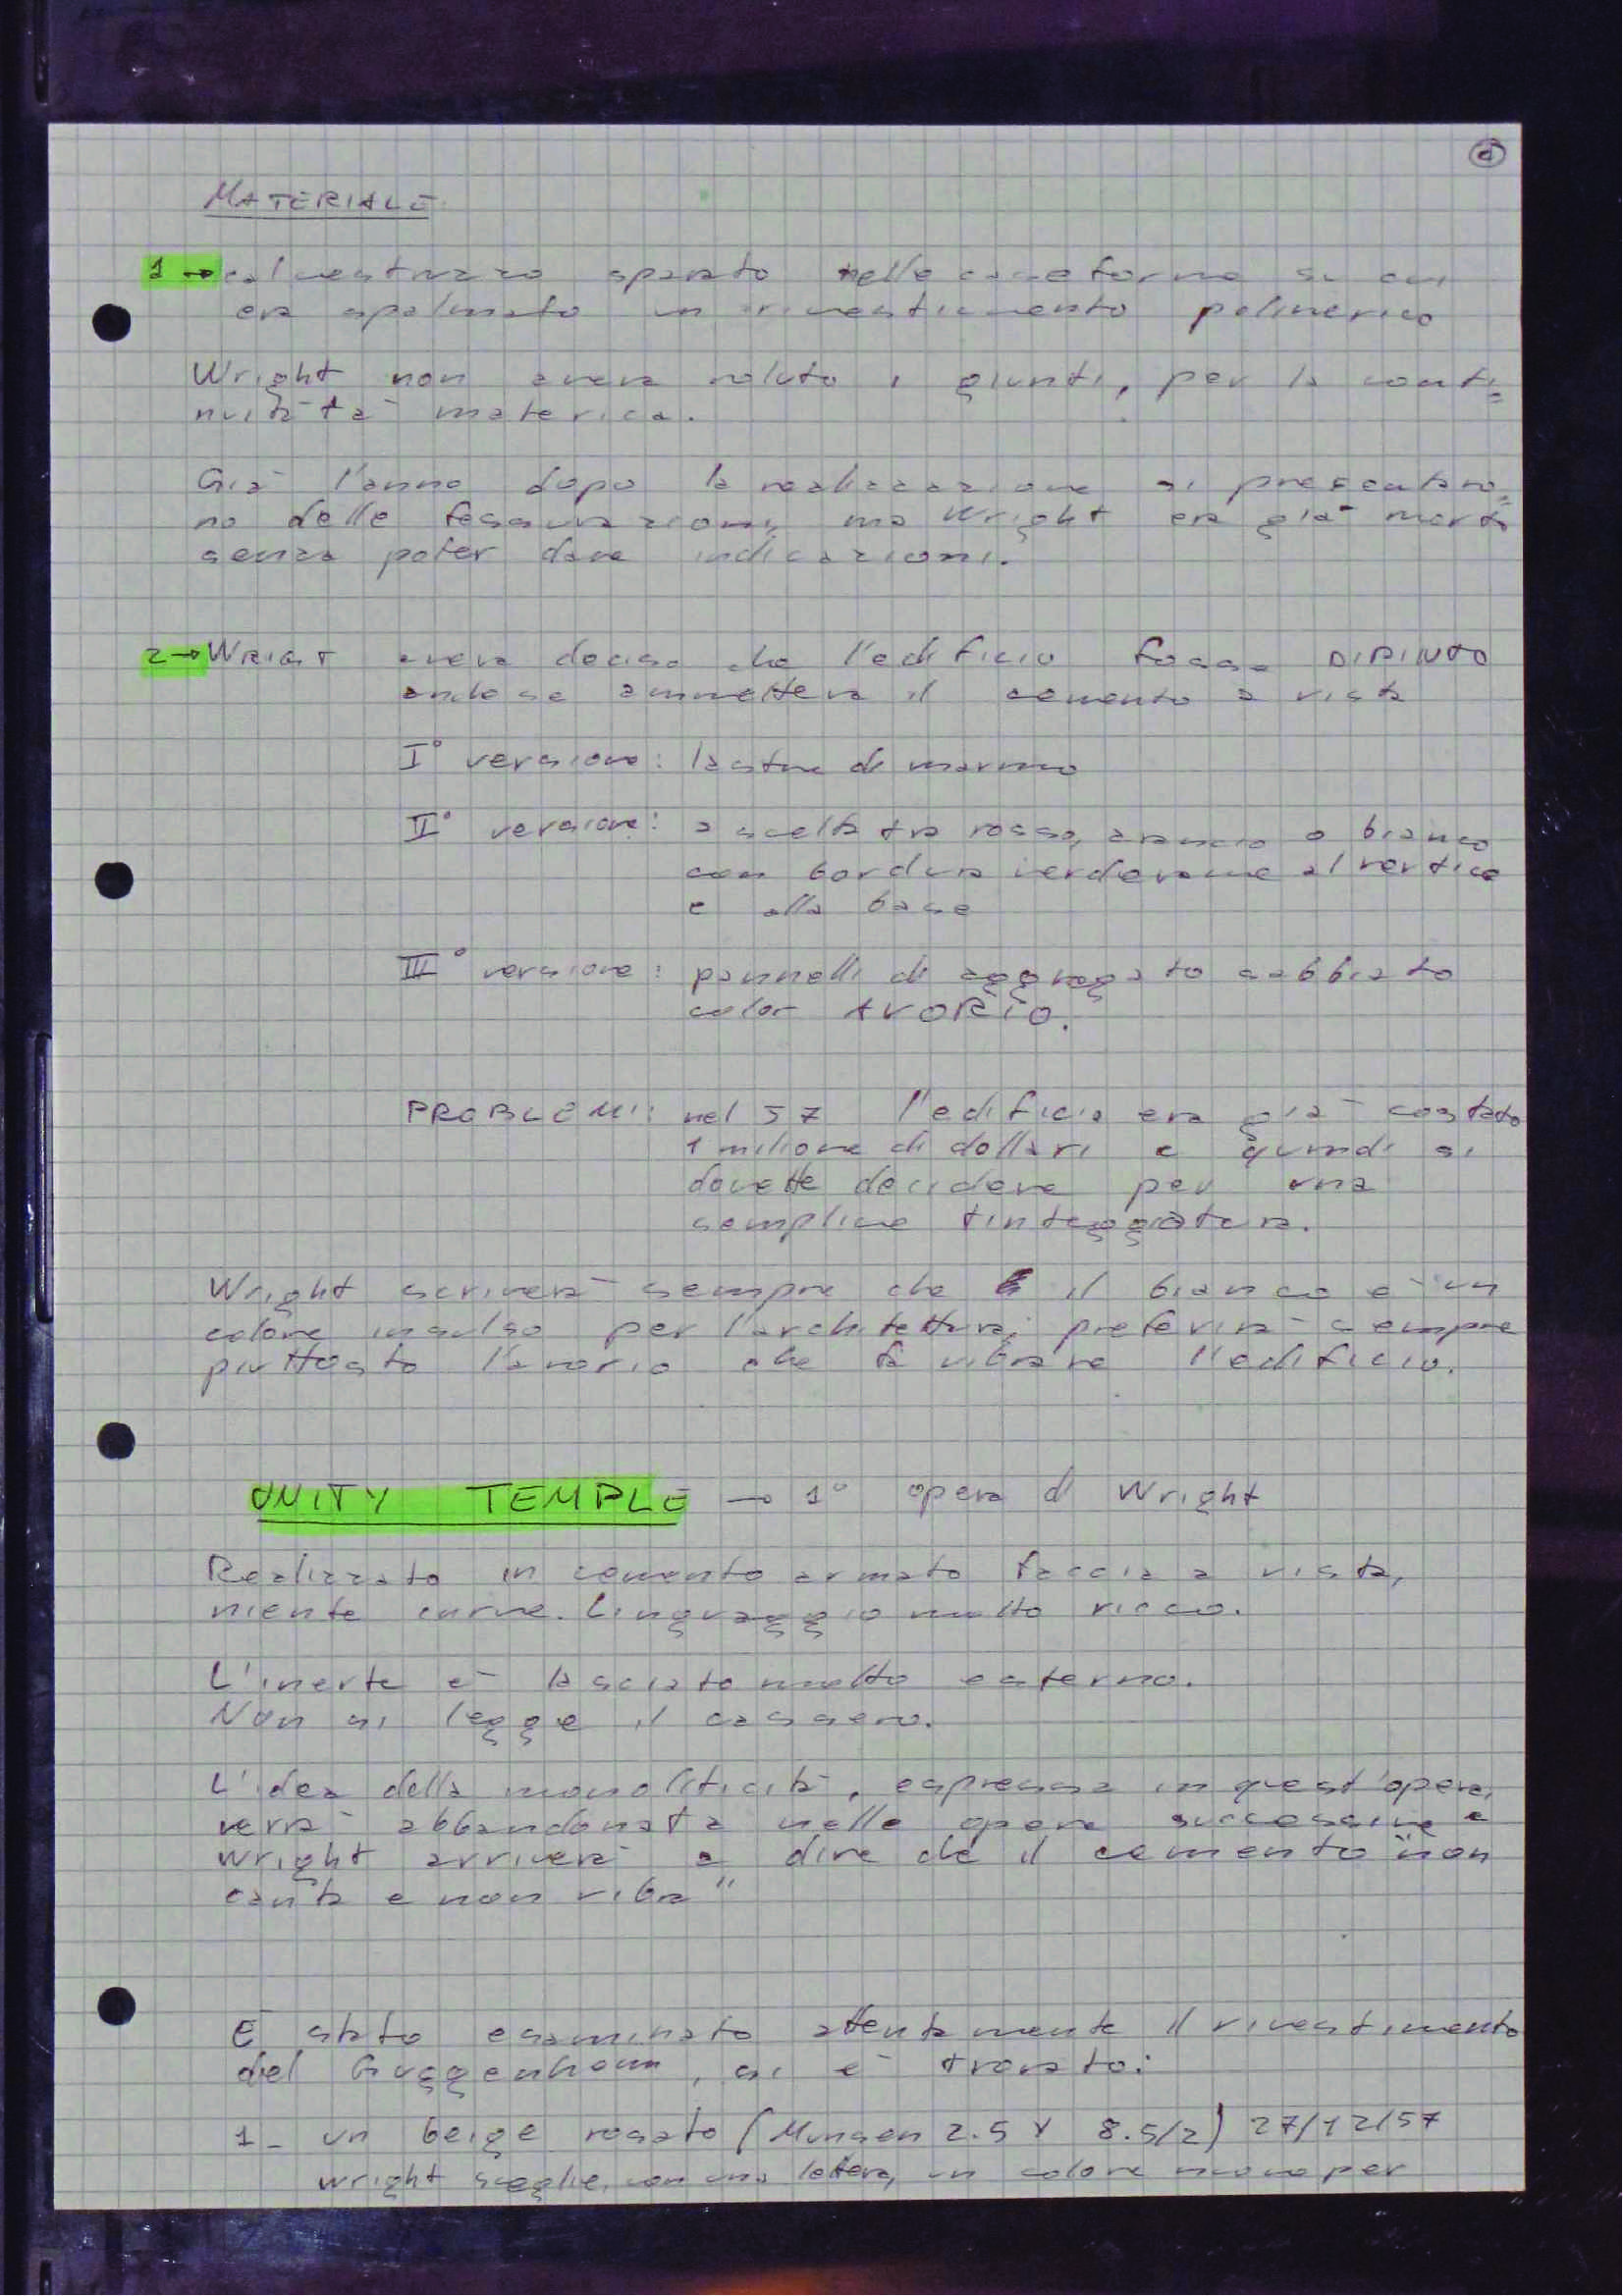 MATERIALE
1 → calcestruzzo sparato nelle casseforme su cui
era spalmato un rivestimento polimerico
Wright non aveva voluto i giunti, per la conti=
nuità materica.
Già l'anno dopo la realizzazione si presentaro=
no delle fessurazioni, ma Wright era già morto
senza poter dare indicazioni.
2 → WRIGT aveva deciso che l'edificio fosse DIPINTO
anche se ammetteva il cemento a vista
I° versione: lastre di marmo
II° versione: a scelta tra rosso, arancio o bianco
con bordura verderame al vertice
e alla base
III° versione: pannelli di aggregato sabbiato
color AVORIO.
PROBLEMI: nel 57 l'edificio era già costato
1 milione di dollari e quindi si
dovette decidere per una
semplice tinteggiatura.
Wright scriverà sempre che il bianco è un
colore insulso per l'architettura; preferirà sempre
piuttosto l'avorio che fa vibrare l'edificio.
UNITY TEMPLE → 1° opera di Wright
Realizzato in cemento armato faccia a vista,
niente curve. Linguaggio molto ricco.
L'inerte è lasciato molto esterno.
Non si legge il cassero.
L'idea della monoliticità, espressa in quest'opera,
verrà abbandonata nelle opere successive e
Wright arriverà a dire che il cemento "non
canta e non vibra"
E stato esaminato attentamente il rivestimento
del Guggenheim, si è trovato:
1- un beige rosato (Munsen 2.5 Y 8.5/2) 27/12/57
Wright sceglie, con una lettera, un colore nuovo per